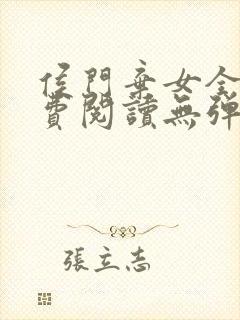 侯門棄女全
費閱讀無彈
張立志